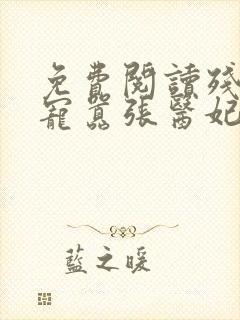 免費閱讀殘
寵囂張醫妃
藍之暖